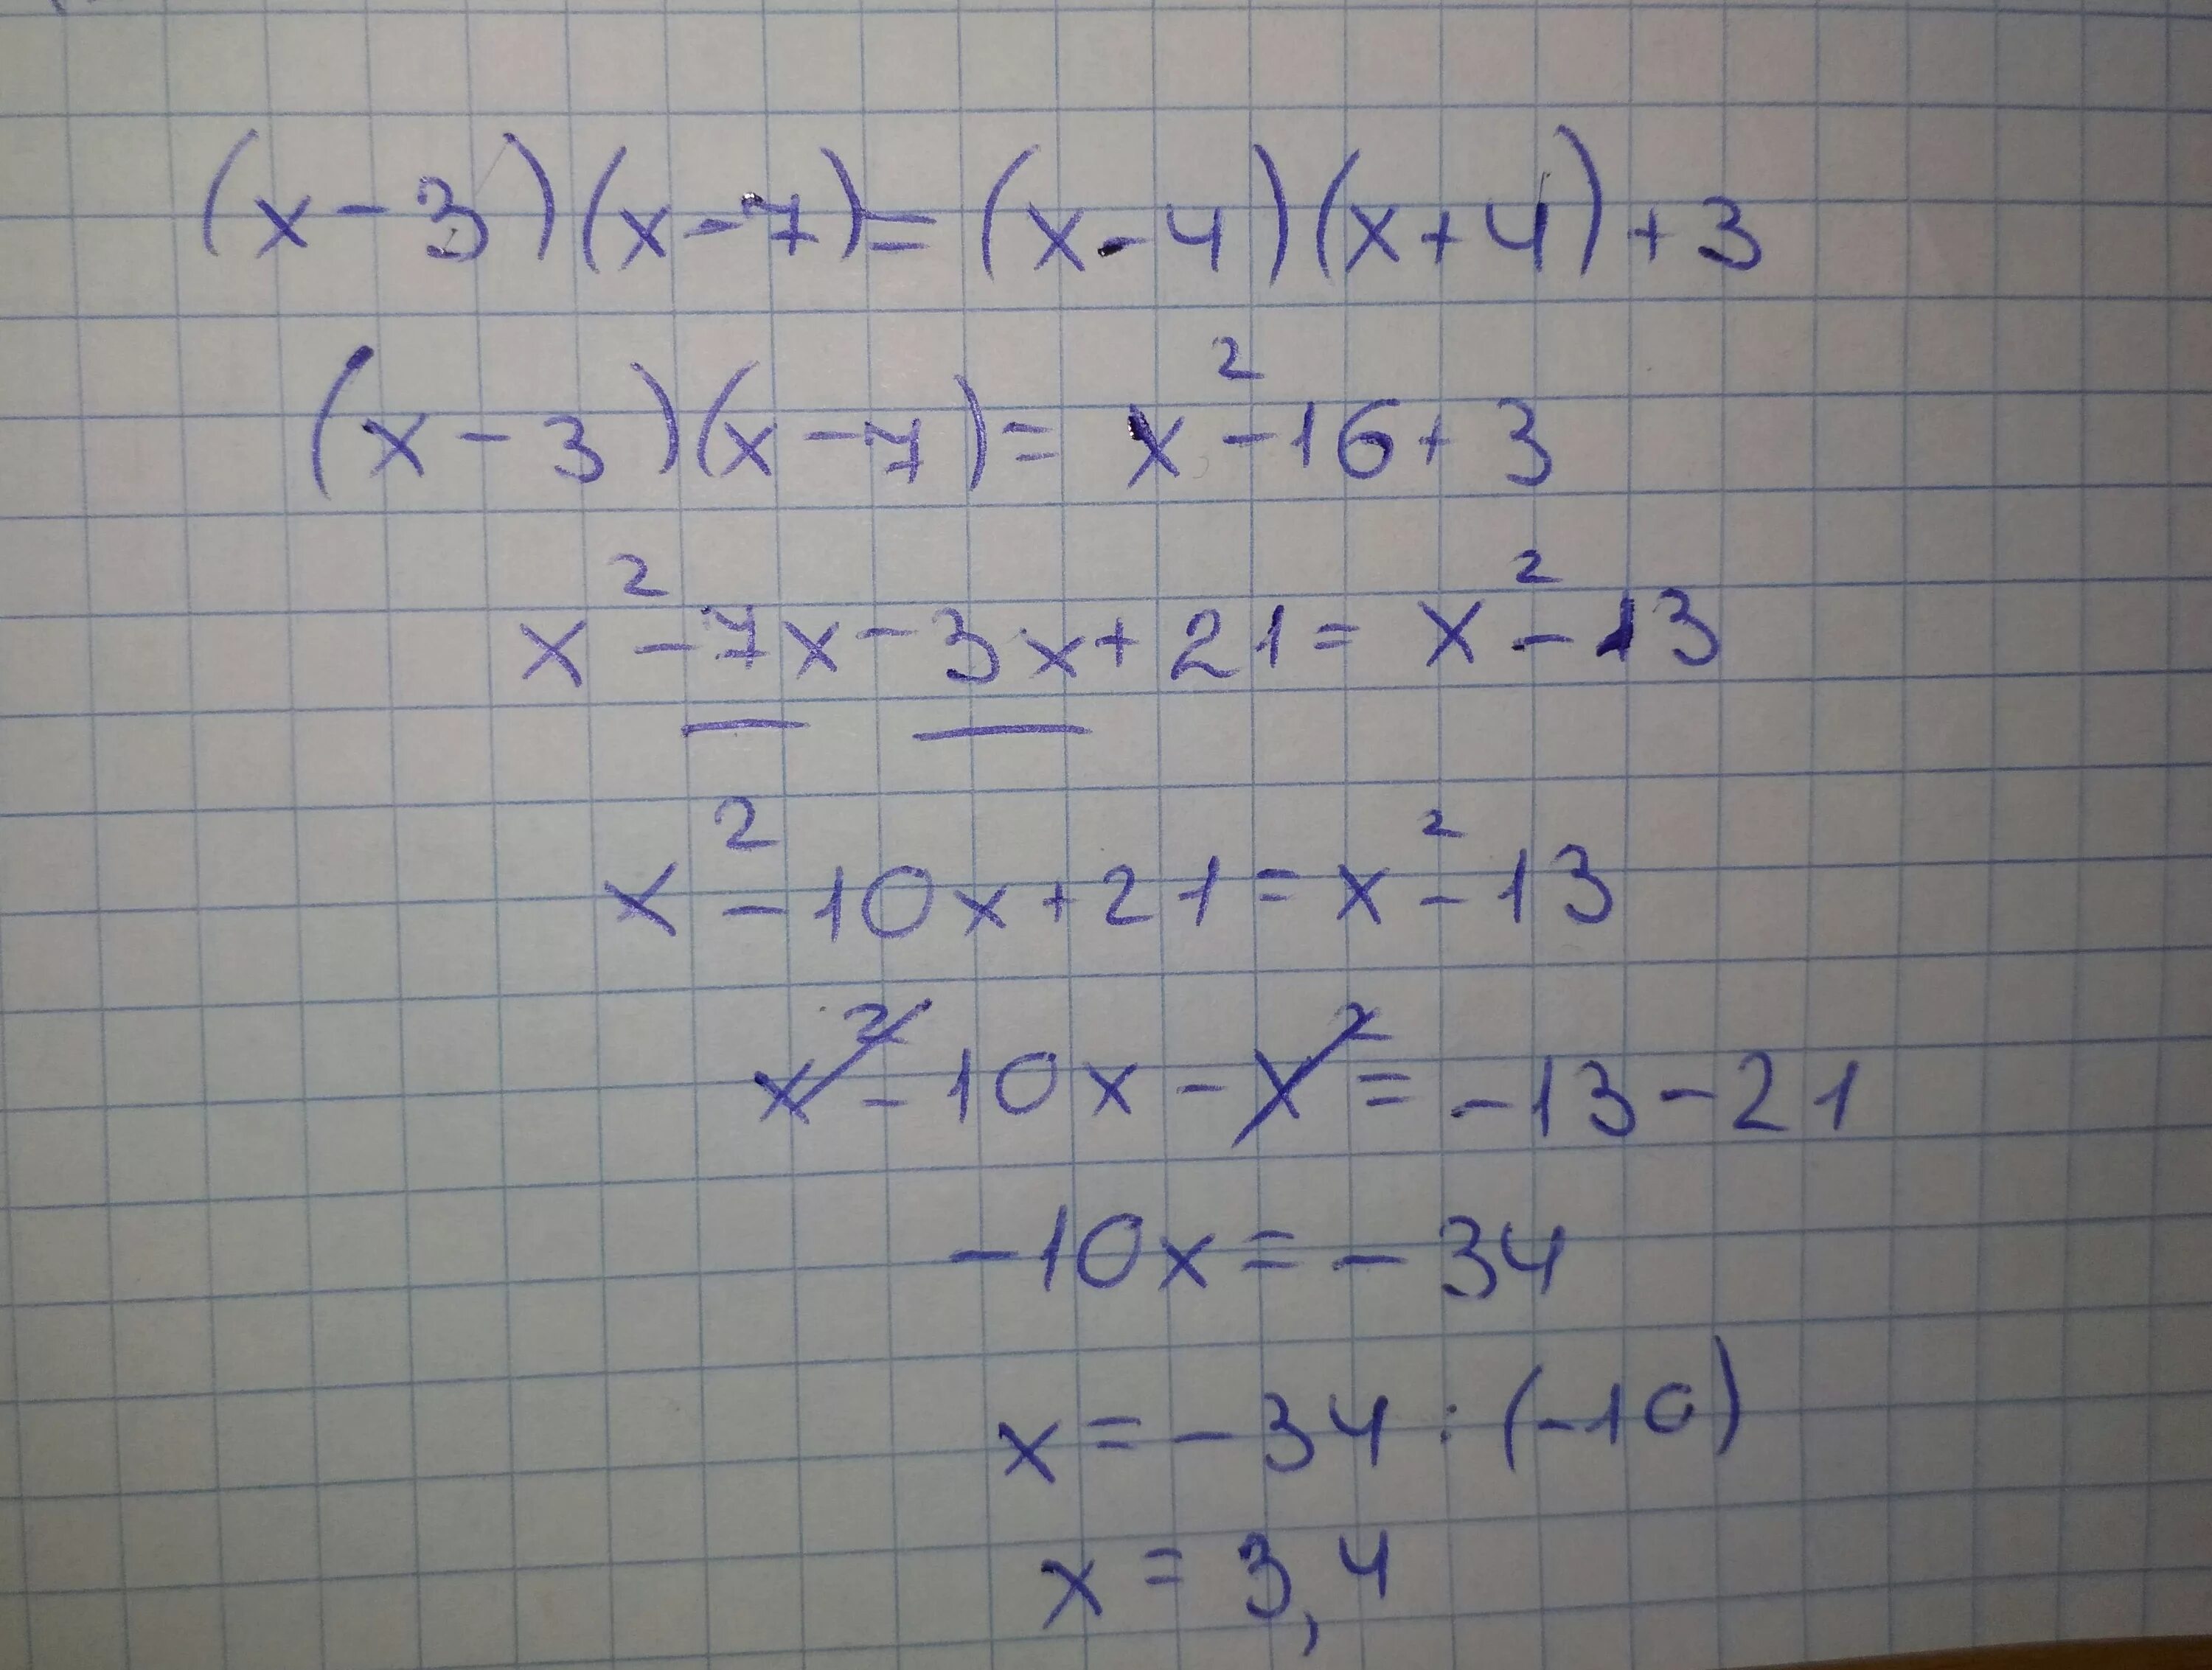 (x-3)(x-7)=(x-4)(x+4)+3
(x-3)(x-7)=x²-16+3
x²-7x-3x+21=x²-13
x²-10x+21=x²-13
x²-10x-x²=-13-21
-10x=-34
x=-34:(-10)
x=3,4